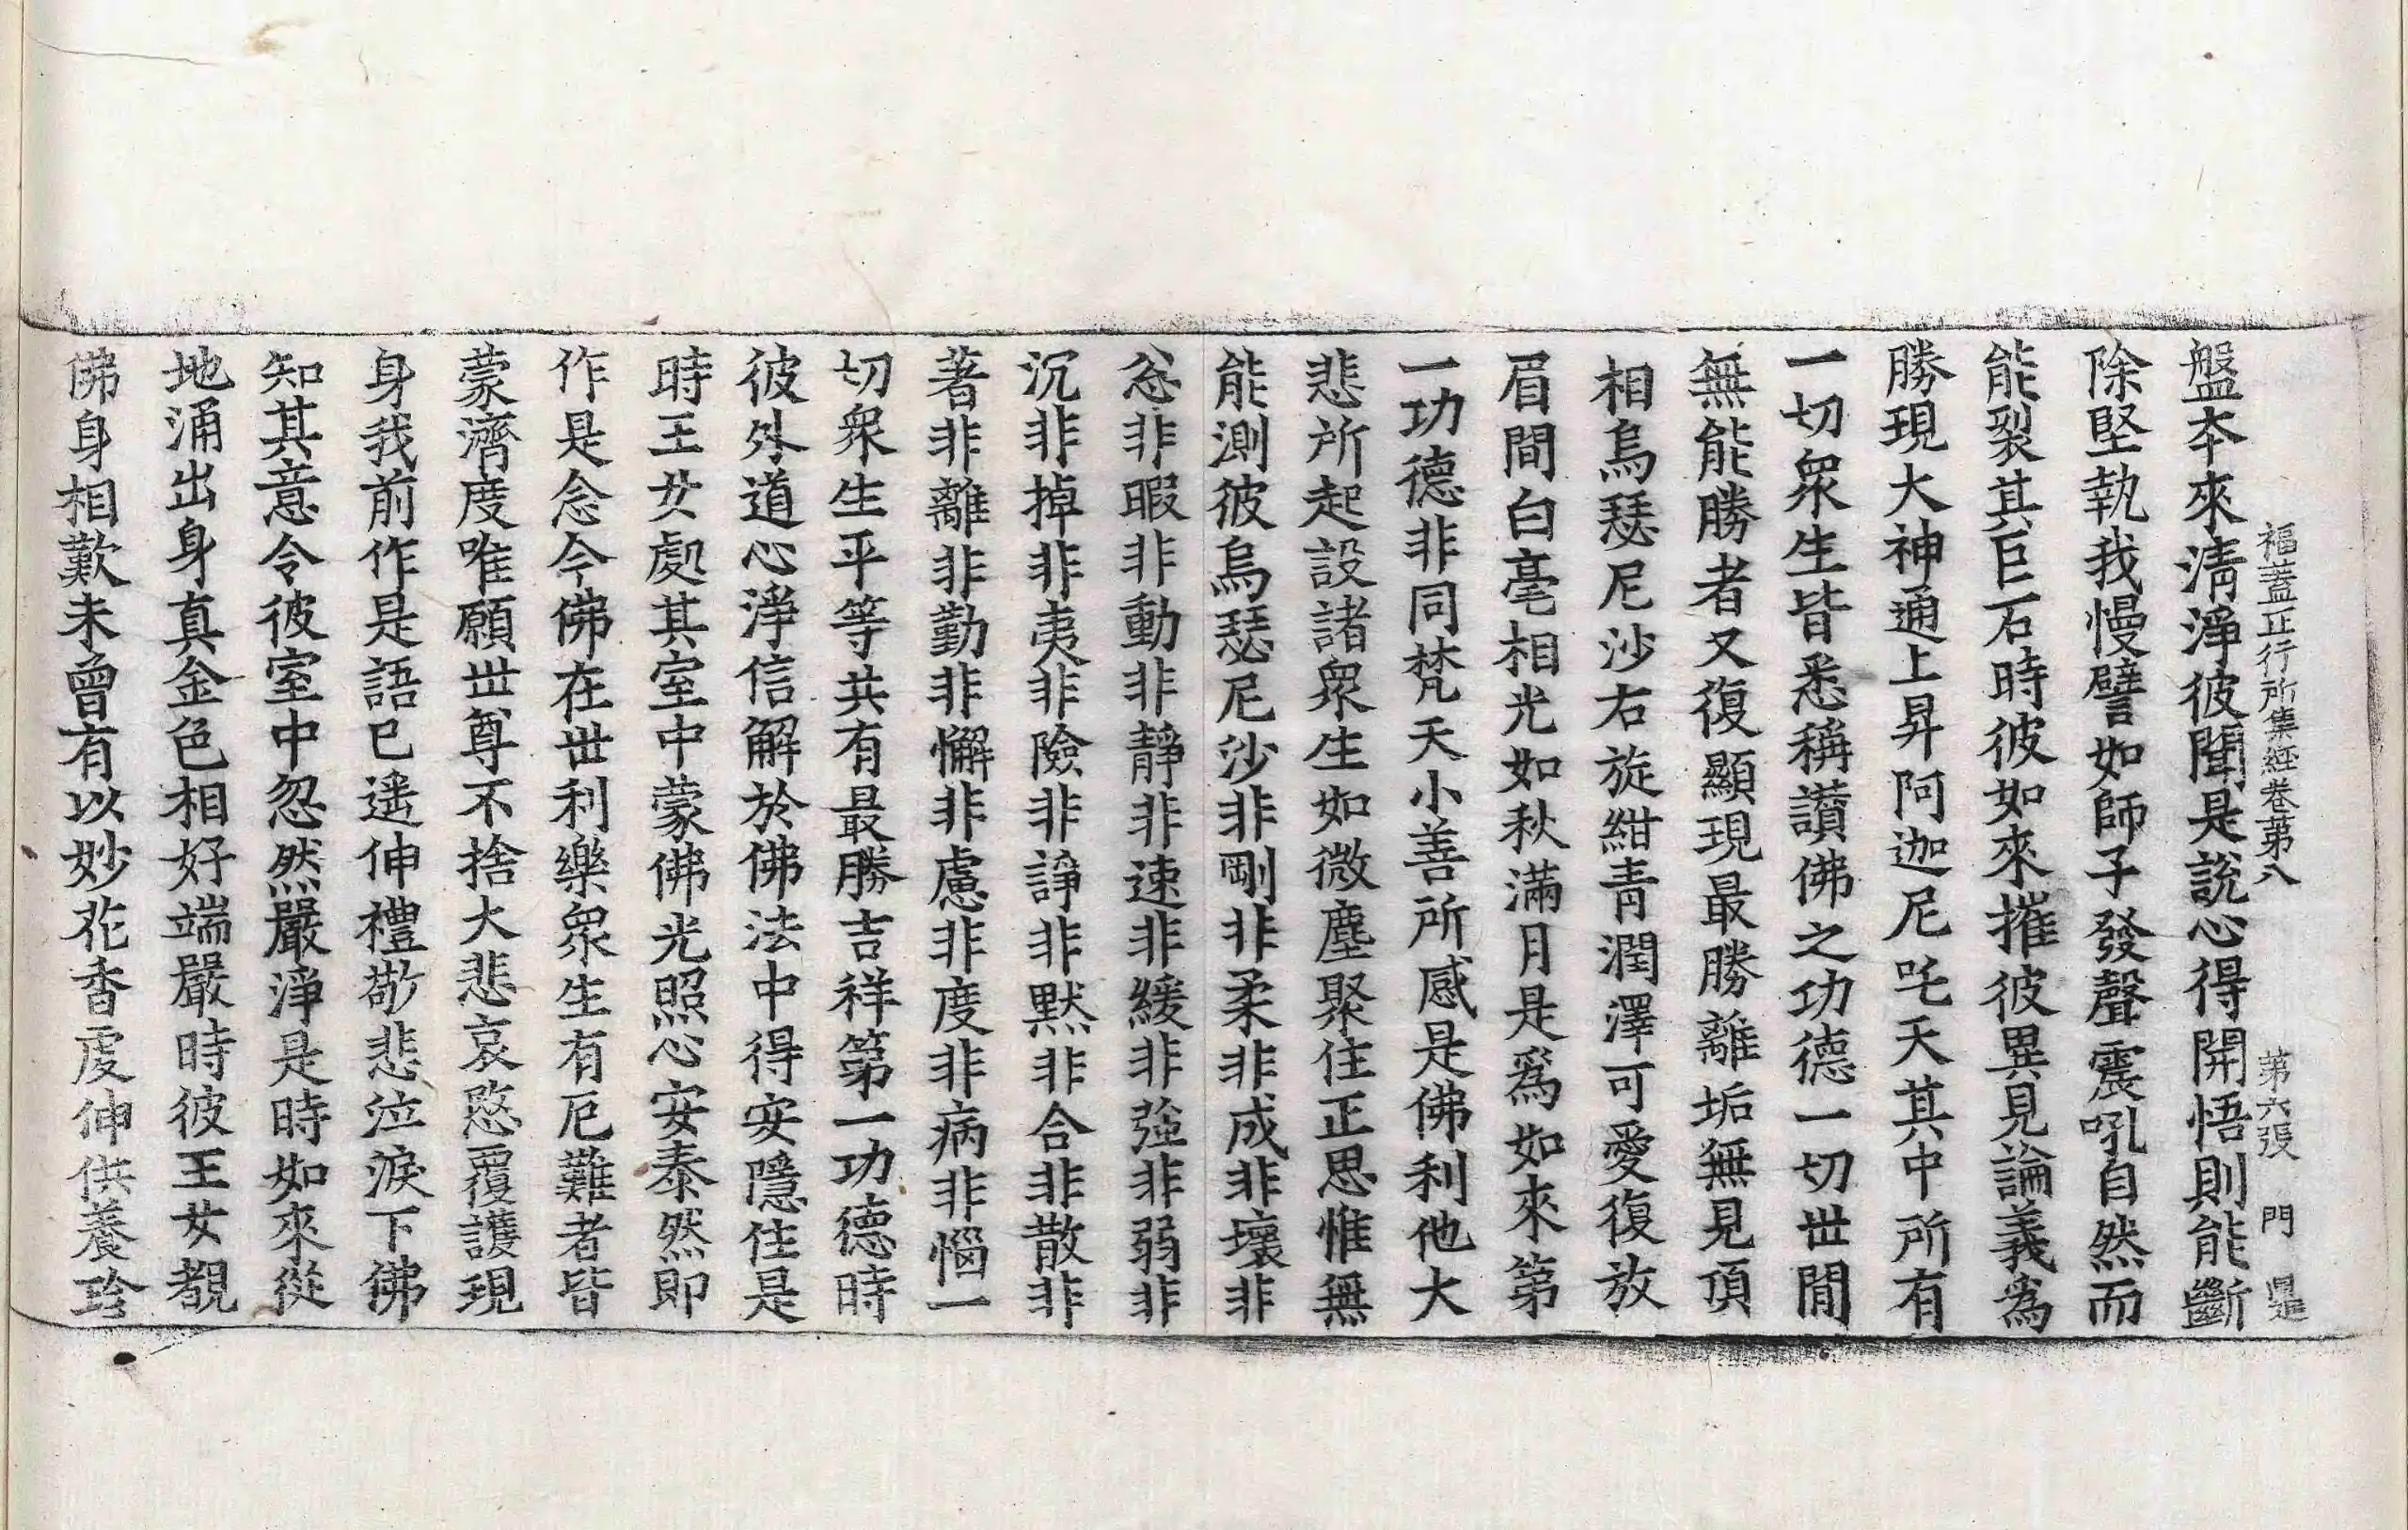 福蓋正行所集經卷苐八 苐六張 門 是
盤本來淸淨彼聞是說心得開悟則能斷
除堅執我慢譬如師子發聲震吼自然而
能裂其巨石時彼如來摧彼異見論義爲
勝現大神通上昇阿迦尼吒天其中所有
一切衆生皆悉稱讚佛之功德一切世閒
無能勝者又復顯現最勝離垢無見頂
相烏瑟尼沙右旋紺青潤澤可愛復放
眉間白毫相光如秋滿月是爲如來第
一功德非同梵天小善所感是佛利他大
悲所起設諸衆生如微塵聚住正思惟無
能測彼烏瑟尼沙非剛非柔非成非壞非
忩非暇非動非靜非速非緩非強非弱非
沉非掉非夷非險非諍非默非合非散非
著非離非勤非懈非慮非度非病非惱一
切衆生平等共有最勝吉祥第一功德時
彼外道心淨信解於佛法中得安隱住是
時王女處其室中蒙佛光照心安泰然即
作是念今佛在世利樂衆生有厄難者皆
蒙濟度唯願世尊不捨大悲哀愍覆護現
身我前作是語已遥伸禮敬悲泣淚下佛
知其意令彼室中忽然嚴淨是時如來從
地涌出身真金色相好端嚴時彼王女覩
佛身相歎未曾有以妙花香虔伸供養珍